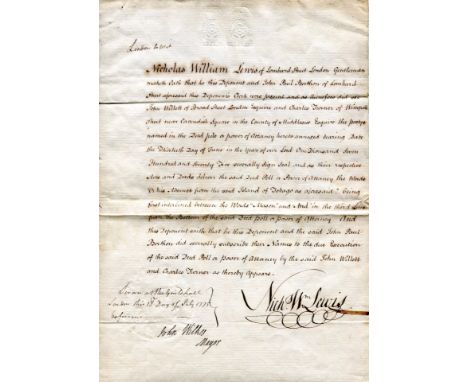 London to Wit
Nicholas William Lewis of Lombard Street London Gentleman
maketh Oath that he this Deponent and John Paul Berthon of Lombard
Street aforesaid this Deponents Clerk were present and as Witnesses did see
John Willett of Broad Street London Esquire and Charles Turner of Wimpole
Street near Cavendish Square in the County of Middlesex Esquire the partys
named in the Deed poll or power of Attorney hereto annexed bearing Date
the Thirtieth Day of June in the Year of our Lord One Thousand Seven
Hundred and Seventy five severally Sign Seal and as their respective
Acts and Deeds deliver the said Deed Poll or Power of Attorney the Words
from the said Island of Tobago as aforesaid" being
first interlined between the Words and "And" in the third Line
from the Bottom of the said Deed poll or power of Attorney And
this Deponent saith that he this Deponent and the said John Paul
Berthon did severally subscribe their Names to the due Execution
of the said Deed Poll or power of Attorney by the said John Willett
and Charles Turner as thereby appears.
Sworn at the Guildhall
London this Day of July 1775
before me
Nichs Wm Lewis
John Wilkes
Mayor